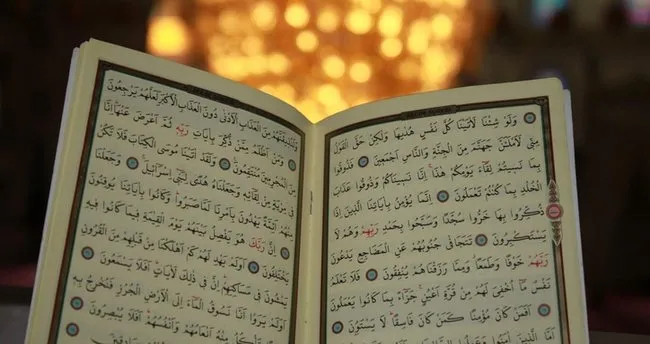 وَلَوْ شِئْنَا لَاٰتَيْنَا كُلَّ نَفْسٍ هُدٰيهَا وَلٰكِنْ حَقَّ الْقَوْلُ
مِنّ۪ي لَاَمْلَـَٔنَّ جَهَنَّمَ مِنَ الْجِنَّةِ وَالنَّاسِ اَجْمَع۪ينَ فَذُوقُوا
بِمَا نَس۪يتُمْ لِقَٓاءَ يَوْمِكُمْ هٰذَا اِنَّا نَس۪ينَاكُمْ وَذُوقُوا عَذَابَ
الْخُلْدِ بِمَا كُنْتُمْ تَعْمَلُونَ اِنَّمَا يُؤْمِنُ بِاٰيَاتِنَا الَّذ۪ينَ اِذَا
ذُكِّرُوا بِهَا خَرُّوا سُجَّدًا وَسَبَّحُوا بِحَمْدِ رَبِّهِمْ وَهُمْ لَا
يَسْتَكْبِرُونَ تَتَجَافٰى جُنُوبُهُمْ عَنِ الْمَضَاجِعِ يَدْعُونَ
رَبَّهُمْ خَوْفًا وَطَمَعًا وَمِمَّا رَزَقْنَاهُمْ يُنْفِقُونَ فَلَا تَعْلَمُ
نَفْسٌ مَٓا اُخْفِيَ لَهُمْ مِنْ قُرَّةِ اَعْيُنٍ جَزَٓاءً بِمَا كَانُوا يَعْمَلُونَ
اَفَمَنْ كَانَ مُؤْمِنًا كَمَنْ كَانَ فَاسِقًا لَا يَسْتَوُ۫نَ
اَمَّا الَّذ۪ينَ اٰمَنُوا
وَلَنُذ۪يقَنَّهُمْ مِنَ الْعَذَابِ الْاَدْنٰى دُونَ الْعَذَابِ الْاَكْبَرِ لَعَلَّهُمْ يَرْجِعُونَ
وَمَنْ اَظْلَمُ مِمَّنْ ذُكِّرَ بِاٰيَاتِ رَبِّه۪ ثُمَّ اَعْرَضَ عَنْهَا اِنَّا
مِنَ الْمُجْرِم۪ينَ مُنْتَقِمُونَ وَلَقَدْ اٰتَيْنَا مُوسَى الْكِتَابَ فَلَا تَكُنْ
ف۪ي مِرْيَةٍ مِنْ لِقَٓائِه۪ وَجَعَلْنَاهُ هُدًى لِبَن۪ٓي اِسْرَٓائ۪لَ وَجَعَلْنَا
مِنْهُمْ اَئِمَّةً يَهْدُونَ بِاَمْرِنَا لَمَّا صَبَرُوا وَكَانُوا بِاٰيَاتِنَا يُوقِنُونَ
اِنَّ رَبَّكَ هُوَ يَفْصِلُ بَيْنَهُمْ يَوْمَ الْقِيٰمَةِ ف۪يمَا كَانُوا ف۪يهِ
يَخْتَلِفُونَ اَوَلَمْ يَهْدِ لَهُمْ كَمْ اَهْلَكْنَا مِنْ قَبْلِهِمْ مِنَ الْقُرُونِ
يَمْشُونَ ف۪ي مَسَاكِنِهِمْ اِنَّ ف۪ي ذٰلِكَ لَاٰيَاتٍ اَفَلَا يَسْمَعُونَ
اَوَلَمْ يَرَوْا اَنَّا نَسُوقُ الْمَٓاءَ اِلَى الْاَرْضِ الْجُرُزِ فَنُخْرِجُ بِه۪
زَرْعًا تَأْكُلُ مِنْهُ اَنْعَامُهُمْ وَاَنْفُسُهُمْ اَفَلَا يُبْصِرُونَ